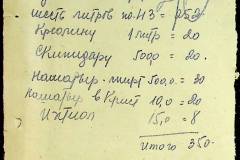 шесть литров по 43 = 252
Креолину 1 литр = 20
Скипидару 500,0 = 20.
Нашатыр. спирт 500,0 = 30
Нашатыр в Крист 10,0 = 20
Ихтиол 150 = 8
Итого 350.